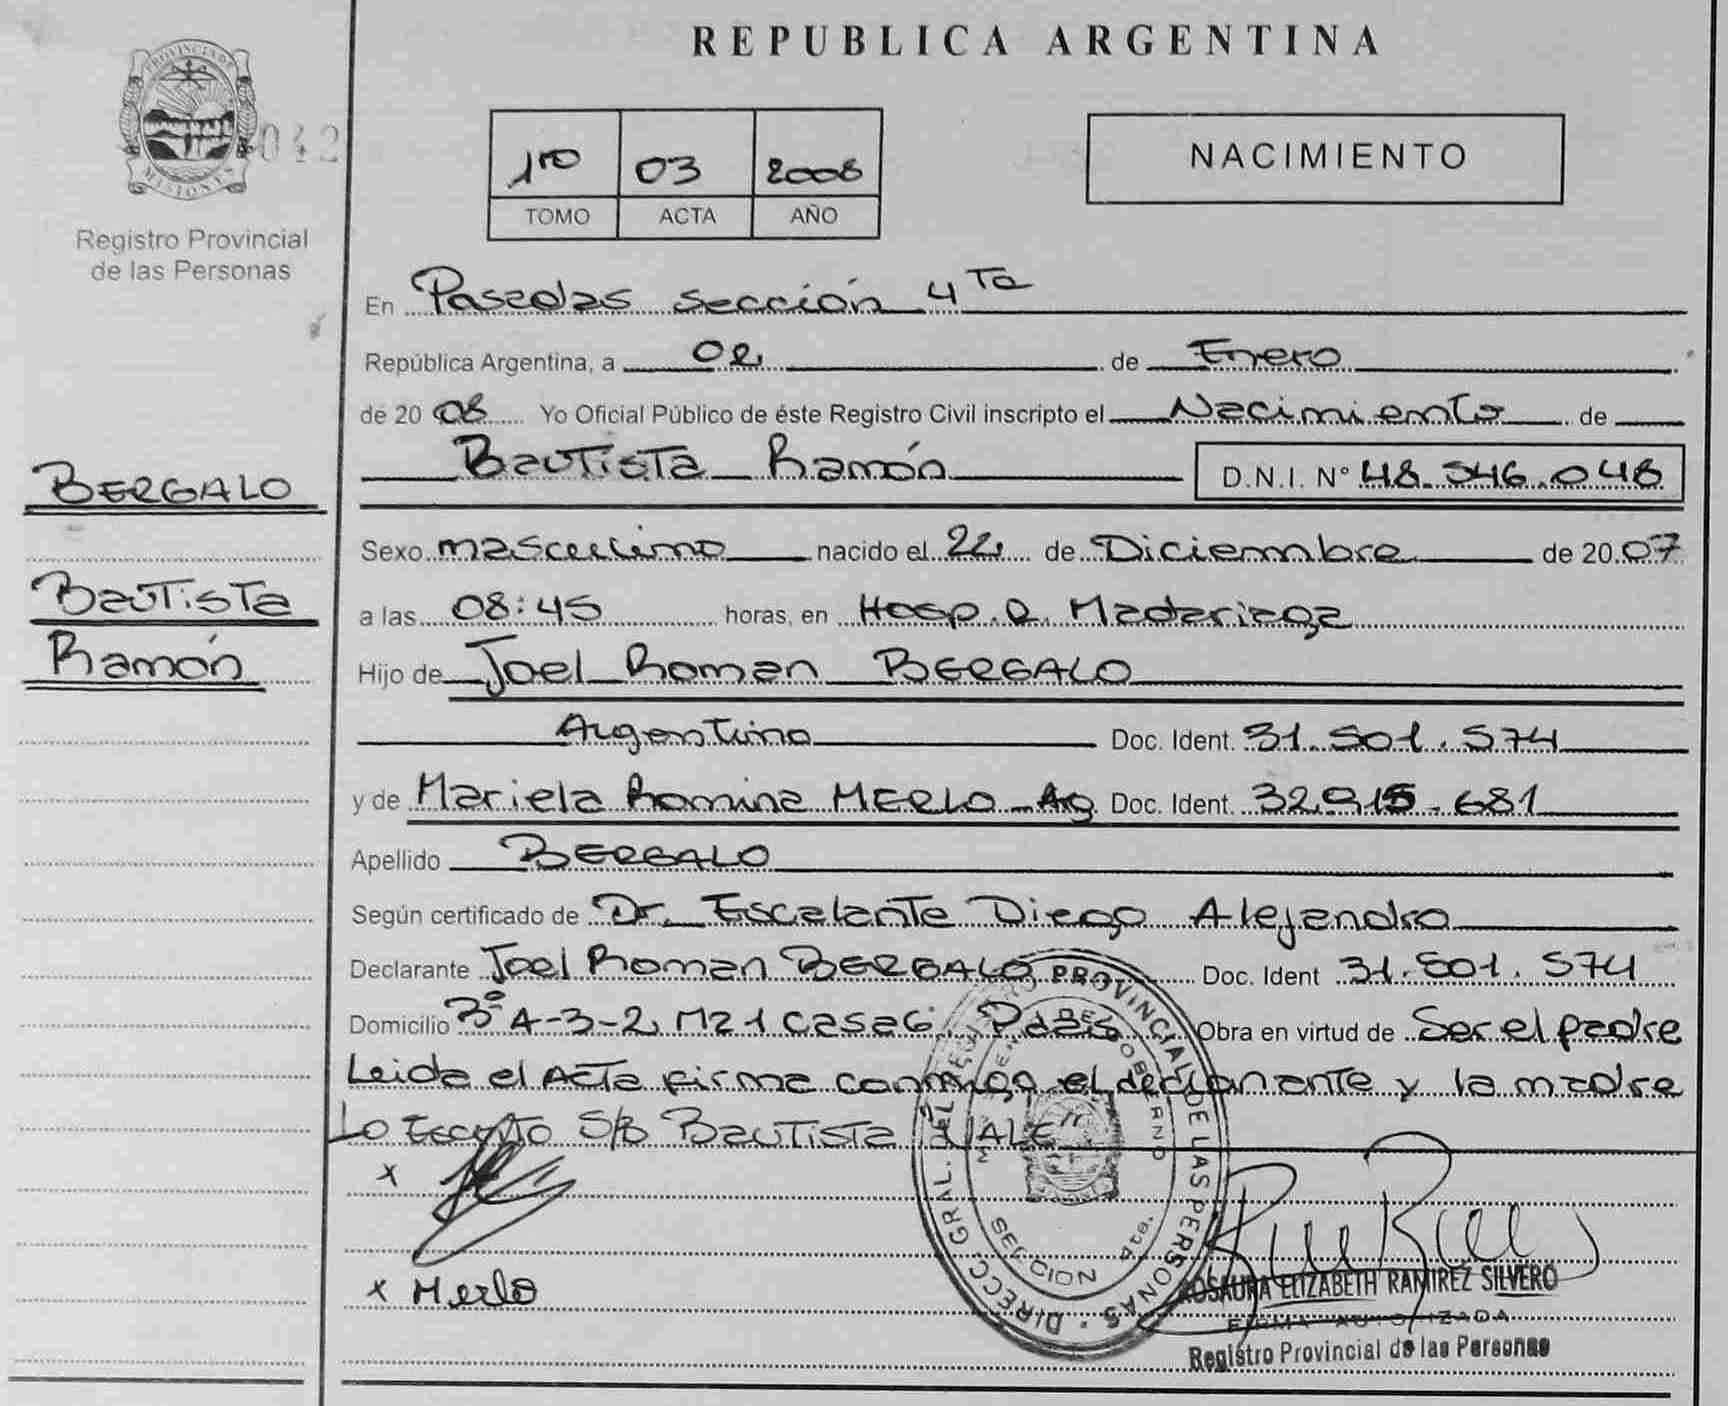 REPUBLICA ARGENTINA
PROVINCIA DE MISIONES
042
Registro Provincial
de las Personas
1ro 03 2008
TOMO ACTA AÑO
NACIMIENTO
En Posadas sección 4Ta
República Argentina, a 02 de Enero
de 20 08 Yo Oficial Público de éste Registro Civil inscripto el Nacimiento de
Bautista Ramón D.N.I. N° 48.546.048
BERGALO
Bautista
Ramón
Sexo masculino nacido el 22 de Diciembre de 20 07
a las 08:45 horas, en Hosp. R. Madariaga
Hijo de Joel Roman BERGALO
Argentino Doc. Ident. 31.501.574
y de Mariela Romina MERLO Ag Doc. Ident. 32.915.681
Apellido BERGALO
Según certificado de Dr. Escalante Diego Alejandro
Declarante Joel Roman BERGALO Doc. Ident 31.501.574
Domicilio Bº A-3-2, M21 casa 6, Pdas Obra en virtud de Ser el padre
Leida el Acta firma conmigo el declarante y la madre
Lo Escrito S/B Bautista VALE"
x
x Merlo
DIRECC. GRAL. DEL REGISTRO PROVINCIAL DE LAS PERSONAS
SECCION 4ta.
ROSAURA ELIZABETH RAMIREZ SILVERO
FIRMA AUTORIZADA
Registro Provincial de las Personas